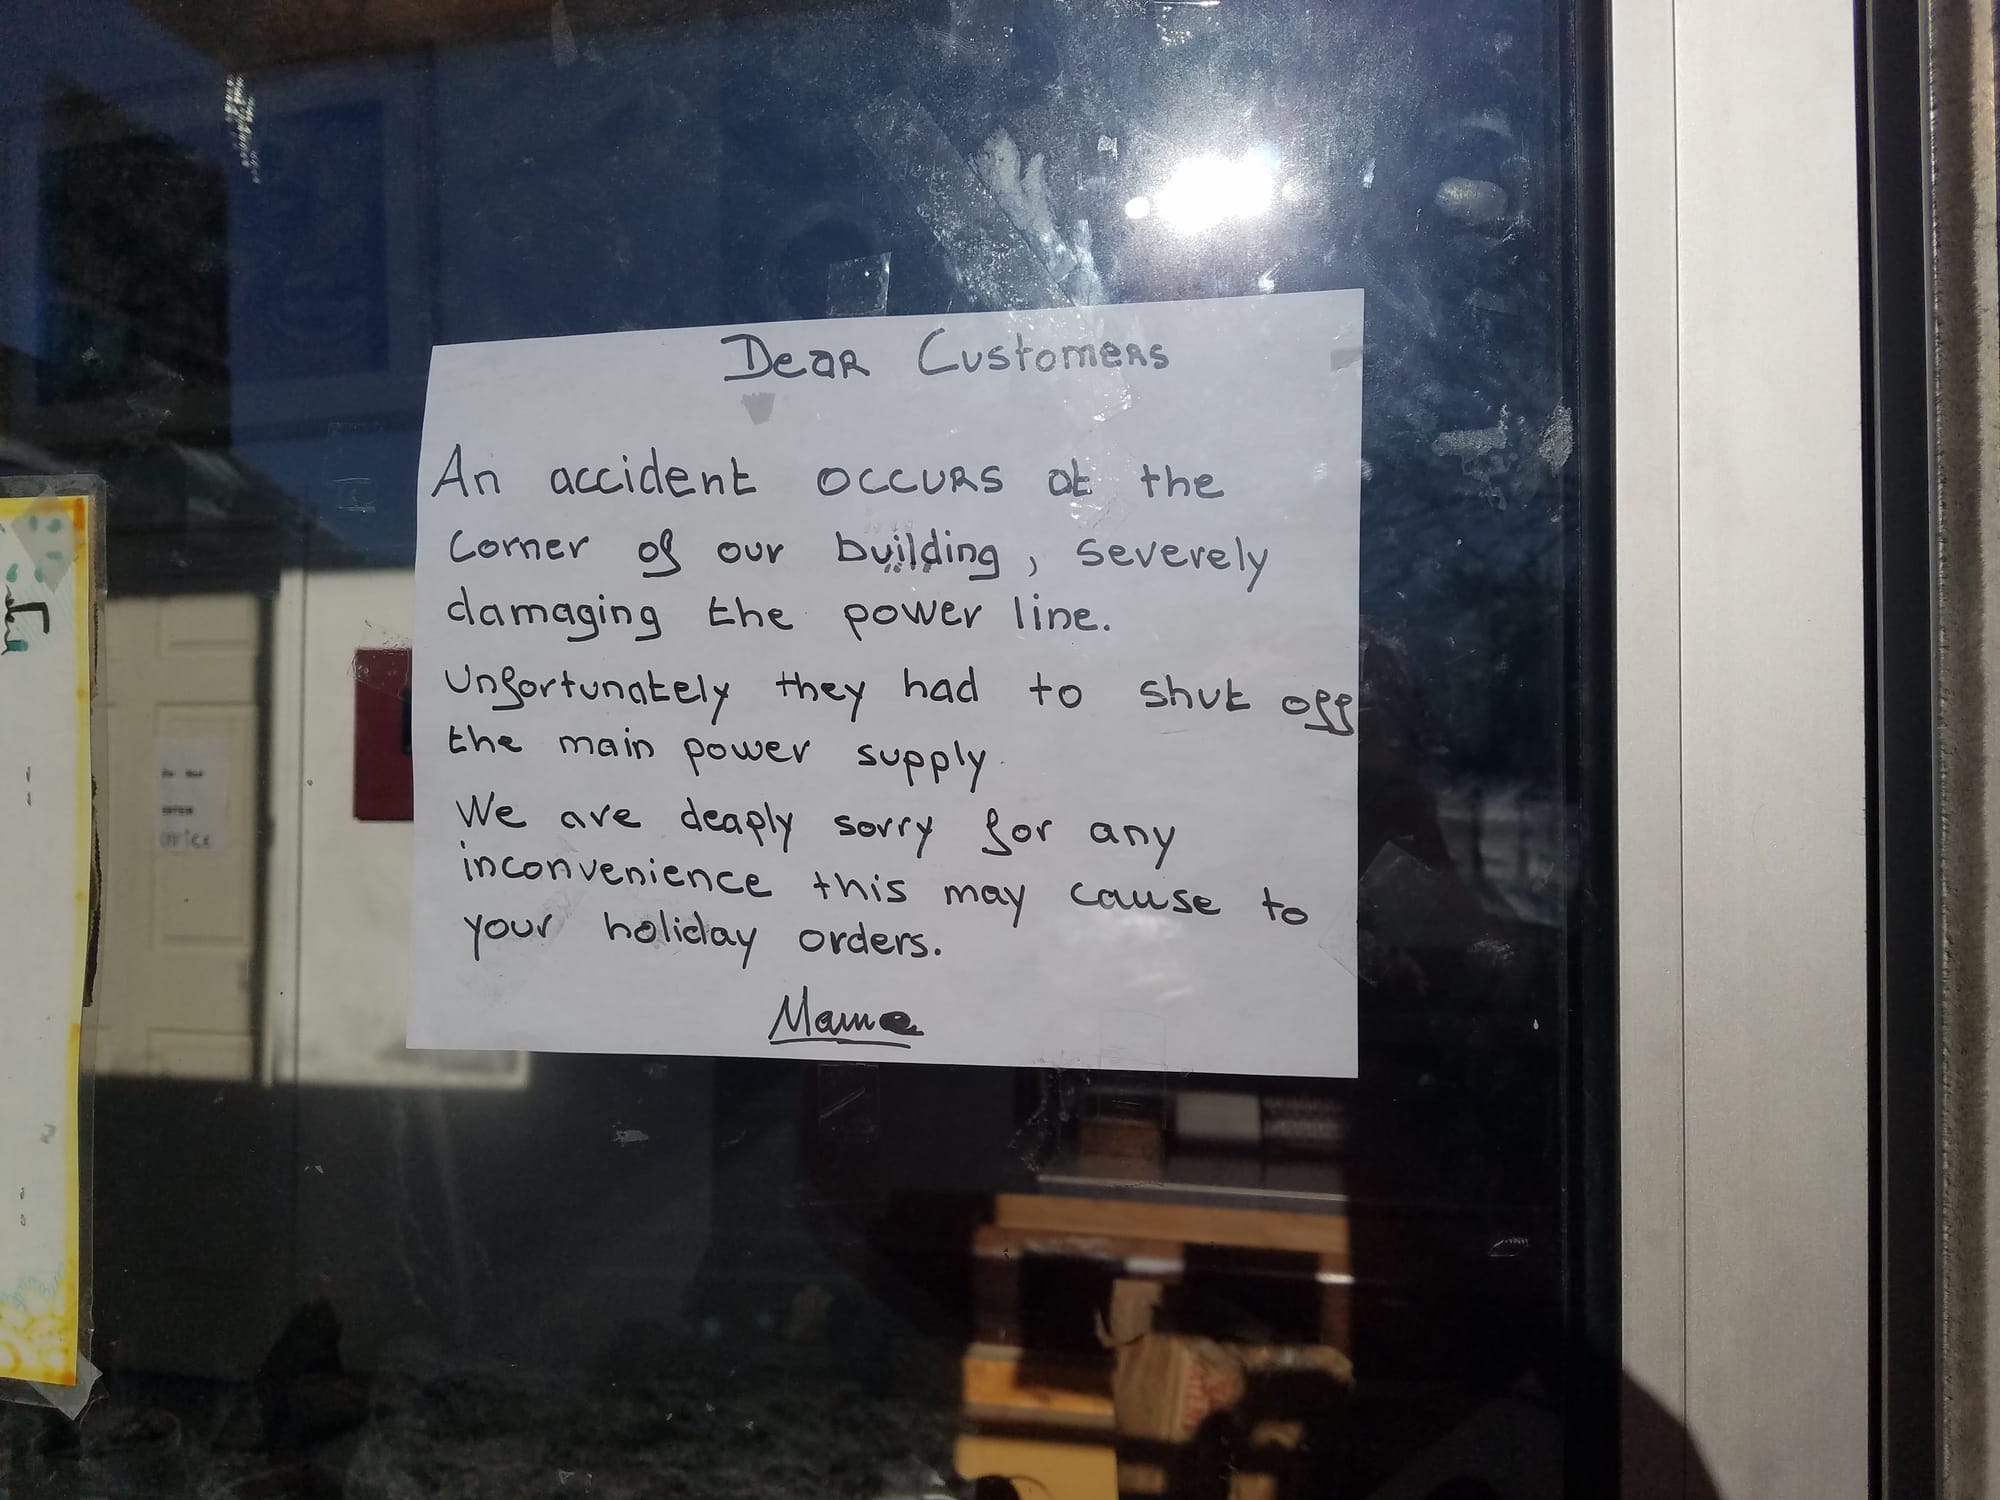 Dear Customers
An accident occurs at the
corner of our building, severely
damaging the power line.
Unfortunately they had to shut off
the main power supply.
We are deaply sorry for any
inconvenience this may cause to
your holiday orders.